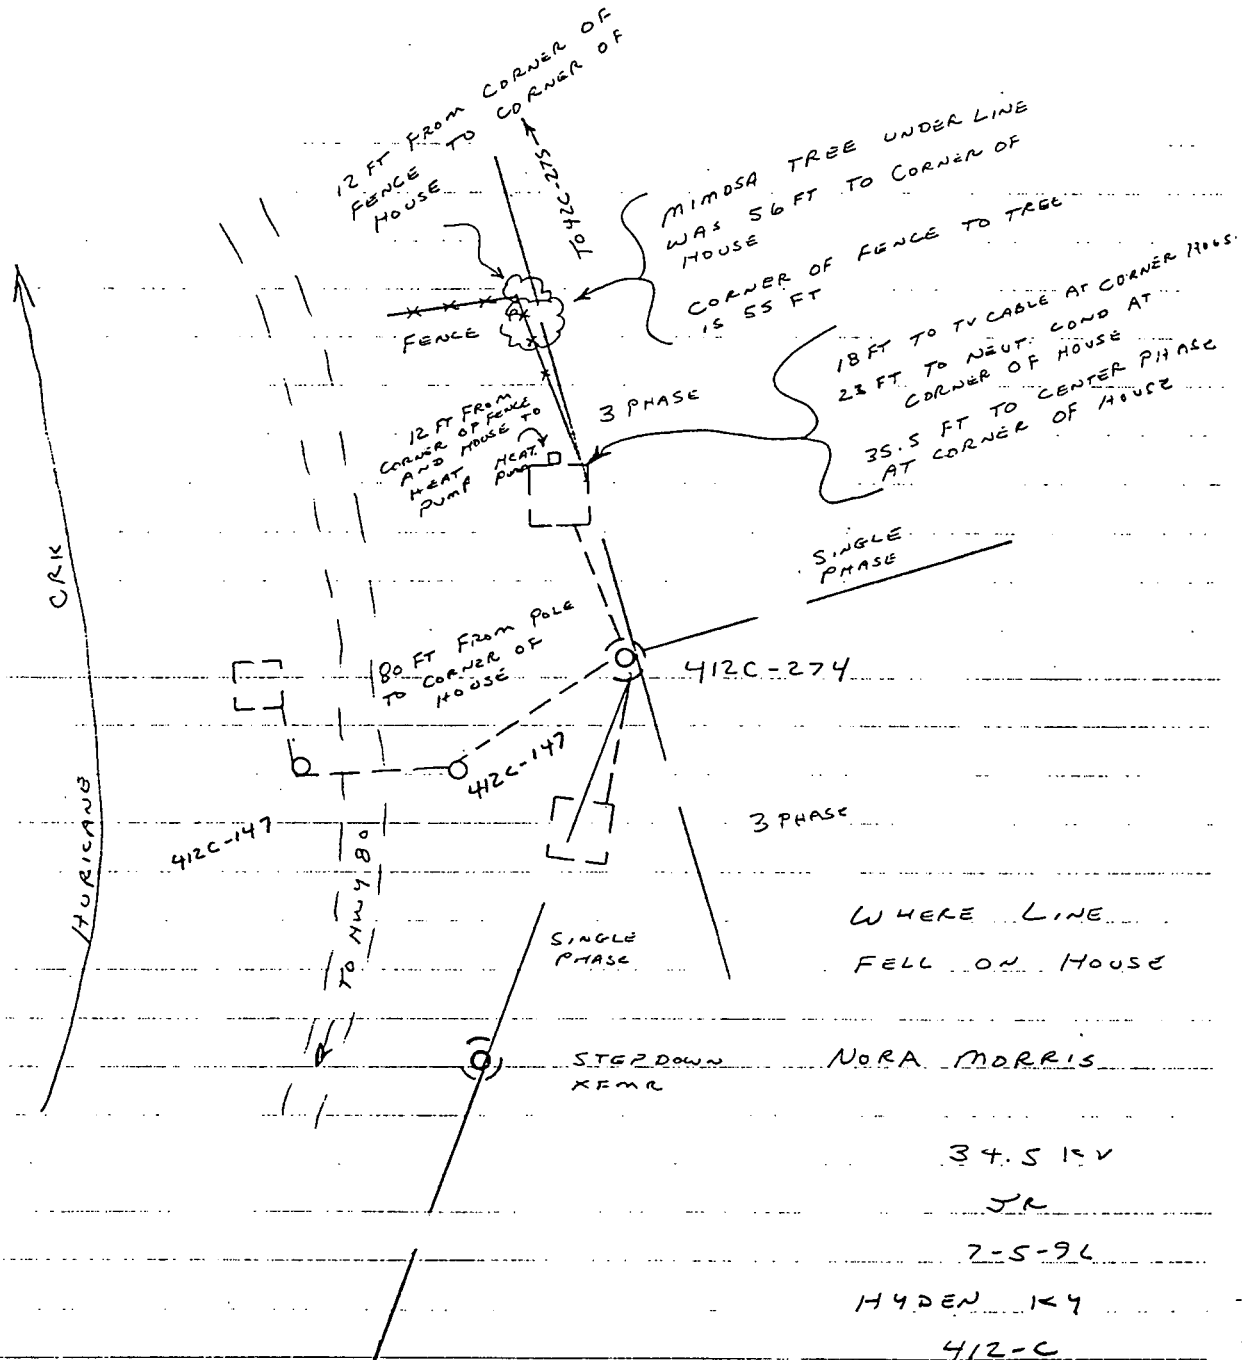 12 FT FROM CORNER OF
FENCE TO CORNER OF
HOUSE
TO 412C-275
MIMOSA TREE UNDER LINE
WAS 56 FT TO CORNER OF
HOUSE
CORNER OF FENCE TO TREE
IS 55 FT
18 FT TO TV CABLE AT CORNER
23 FT TO NEUT. COND AT
CORNER OF HOUSE
35.5 FT TO CENTER PHASE
AT CORNER OF HOUSE
FENCE
12 FT FROM
CORNER OF FENCE
AND HOUSE TO
HEAT
PUMP
HEAT
PUMP
3 PHASE
SINGLE
PHASE
CRK
HURICANE
80 FT FROM POLE
TO CORNER OF
HOUSE
412C-274
412C-147
412C-147
TO HWY 80
3 PHASE
SINGLE
PHASE
WHERE LINE
FELL ON HOUSE
STEPDOWN
XFMR
NORA MORRIS
34.5 KV
JR
HYDEN KY
412-C